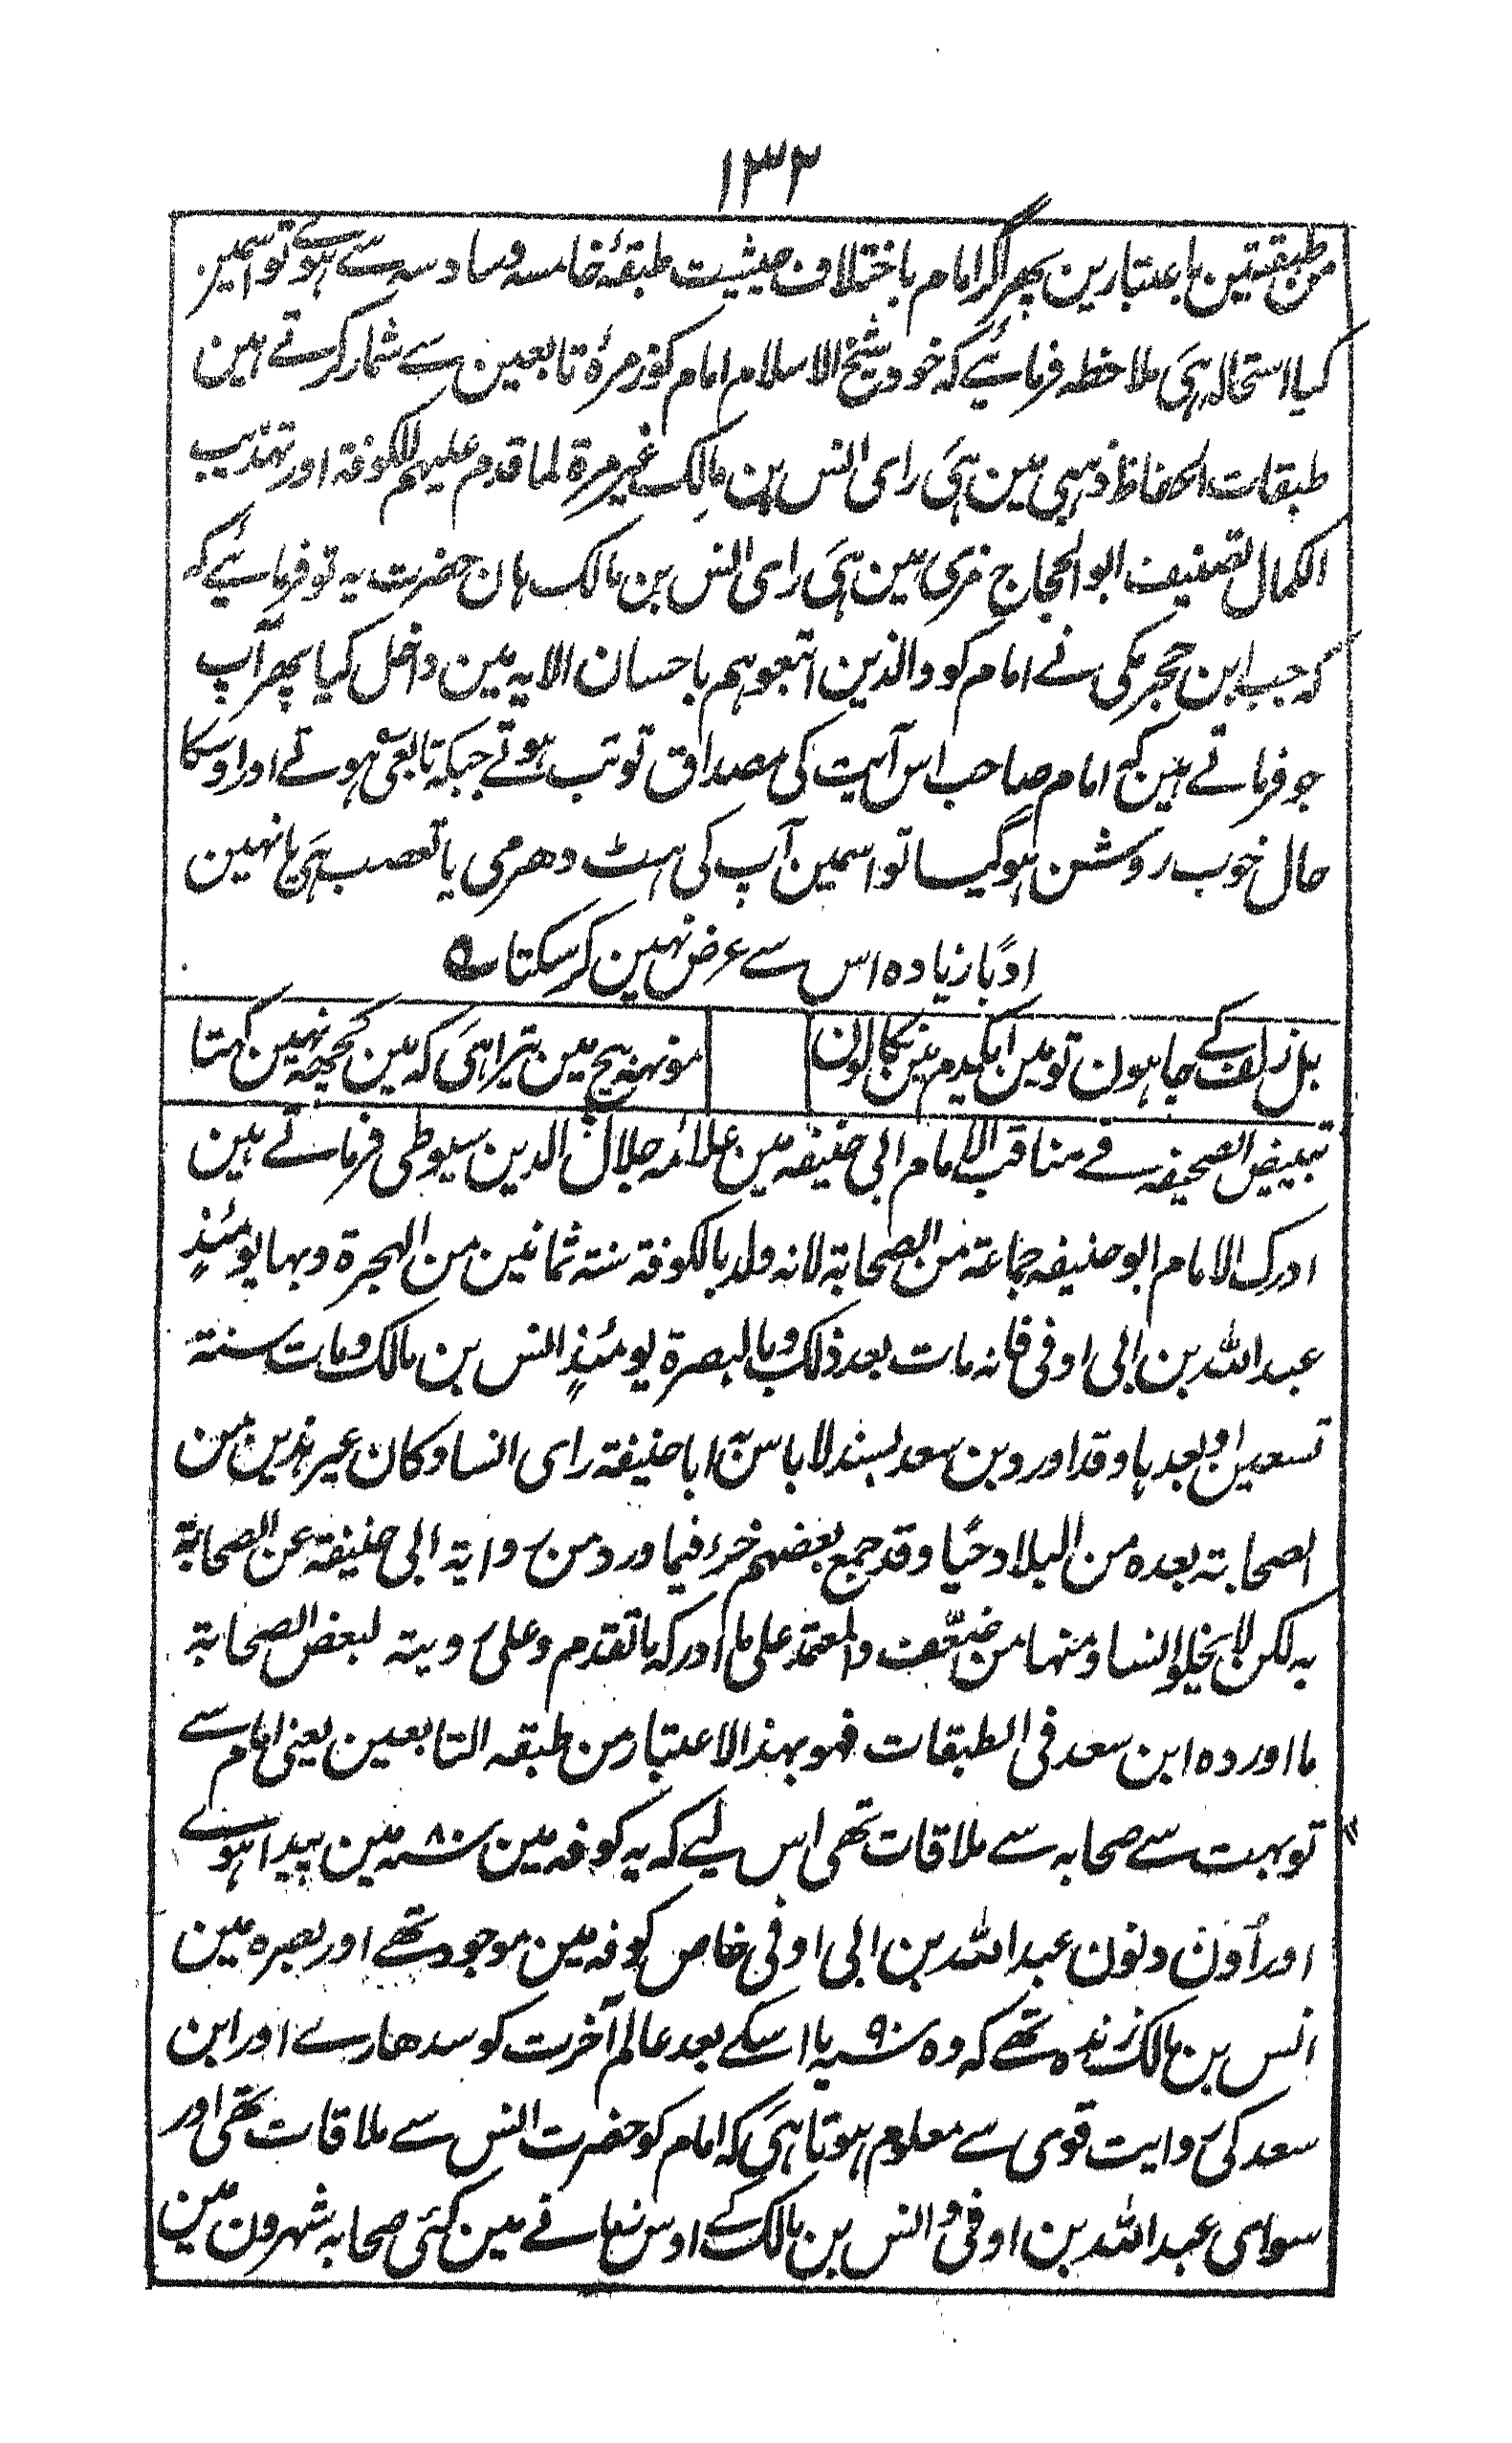 ۱۳۲
من طبقتین باعتبارین پھر اگر امام باختلاف حیثیت طبقۂ خامسہ وسادسہ سے ہوے تو اسمین
کیا استحالہ ہی ملاحظہ فرمائیے کہ خود شیخ الاسلام امام کو زمرۂ تابعین سے شمار کرتے ہین
طبقات الحفاظ ذہبی مین ہی رای انس بن مالک غیر مرة لما قدم علیہم الکوفۃ اور تہذیب
الکمال تصنیف ابو الحجاج مزی مین ہی رای انس بن مالک ہان حضرت یہ تو فرمائیے کہ
کہ جب ابن حجر مکی نے امام کو والذین اتبعوہم باحسان الایہ مین داخل کیا پھر آپ
جو فرماتے ہین کہ امام صاحب اس آیت کی مصداق تو تب ہوتے جبکہ تابعی ہوتے اور اوسکا
حال خوب روشن ہوگیا تو اسمین آپ کی ہٹ دھرمی یا تعصب ہی یا نہین
ادبًا زیادہ اس سے عرض نہین کر سکتا ؎
بل زلف کے چاہون تو مین ایکدم مین نکالون
مونہہ بیچ مین تیرا ہی کہ مین کچھ نہین کہتا
تبییض الصحیفہ فے مناقب الامام ابی حنیفہ مین علامہ جلال الدین سیوطی فرماتے ہین
ادرک الامام ابو حنیفہ جماعۃ من الصحابۃ لانہ ولد بالکوفۃ سنۃ ثمانین من الہجرة وبہا یومئذٍ
عبد اللہ بن ابی اوفی فانہ مات بعد ذلک وبالبصرة یومئذٍ انس بن مالک ومات سنۃ
تسعین او بعدہا وقد اورد بن سعد بسند لا باس بہ ان ابا حنیفۃ رای انسا وکان غیر ہذین من
الصحابۃ بعدہ من البلاد حیًا وقد جمع بعضہم جزء فیما ورد من روایۃ ابی حنیفۃ عن الصحابۃ
بہ لکن لا یخلو انسا ومنہا من ضعّف والمعتمد علی ما ادرکہ ما تقدم وعلی رویتہ لبعض الصحابۃ
ما اوردہ ابن سعد فی الطبقات فہو بہذا الاعتبار من طبقہ التابعین یعنی امام سے
تو بہت سے صحابہ سے ملاقات تھی اس لیے کہ یہ کوفہ مین سنہ ۸۰ مین پیدا ہوے
اور اُون دنون عبد اللہ بن ابی اوفی خاص کوفہ مین موجود تھے اور بصرہ مین
انس بن مالک زندہ تھے کہ وہ سنہ ۹۰ یا اسکے بعد عالم آخرت کو سدھارے اور ابن
سعد کی روایت قوی سے معلوم ہوتا ہی کہ امام کو حضرت انس سے ملاقات تھی اور
سوای عبد اللہ بن اوفی و انس بن مالک کے اوس زمانے مین کئی صحابہ شہرون مین